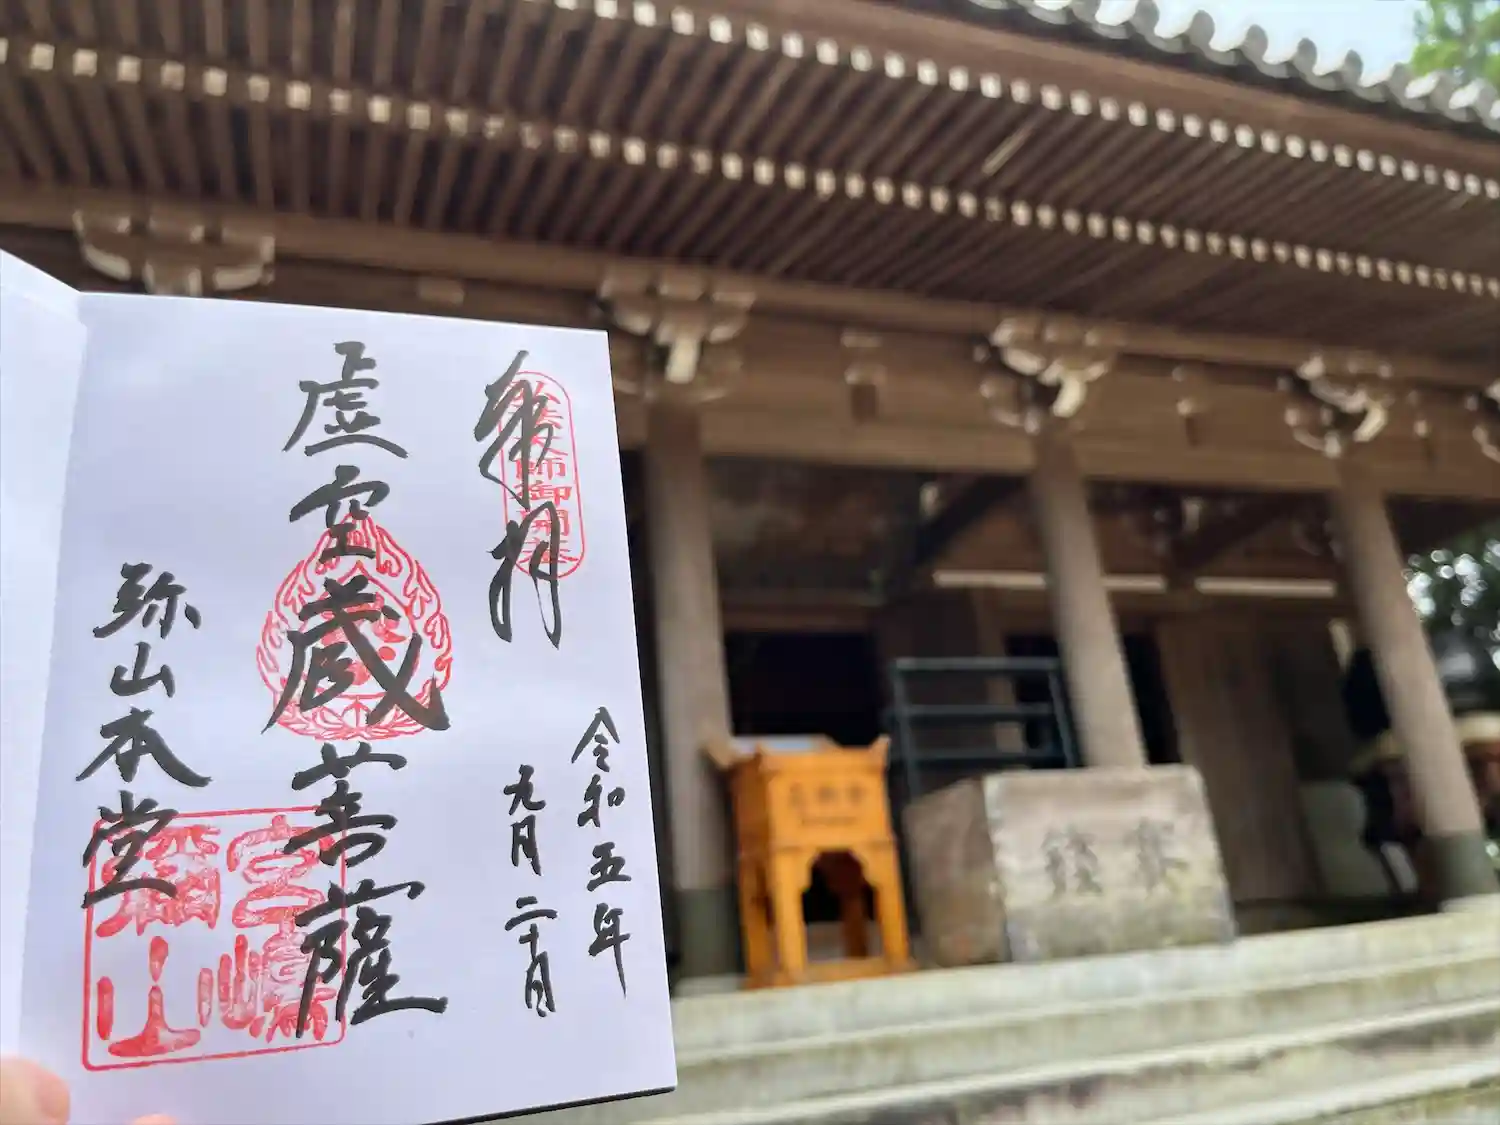 奉拝
弘法大師御開基
令和五年
九月二十日
虚空蔵菩薩
弥山本堂
宮嶋
彌山
賽銭